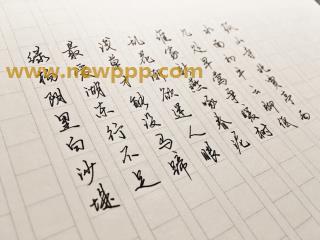 孤山寺北贾亭西
水面初平云脚低
几处早莺争暖树
谁家新燕啄春泥
乱花渐欲迷人眼
浅草才能没马蹄
最爱湖东行不足
绿杨阴里白沙堤
www.newppp.com